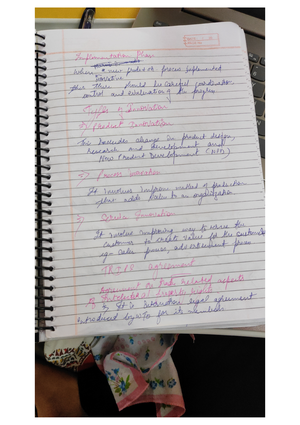 Implementation Phase
when a new product or process implemented
then there should be careful coordination
control and evaluation of the progress
of Innovation
1) Product Innovation
change in product design,
research and development and
New Product Development (NPD)
2) Process Innovation
It involves improve method of production
that adds value to an organization
3) Service Innovation
It involves improving way to serve the
customer to create value for the customer
sales process, advertisement
TRIPS agreement
Agreement on Trade Related aspects
of Intellectual Property Rights
It is legal agreement
introduced by WTO for its members